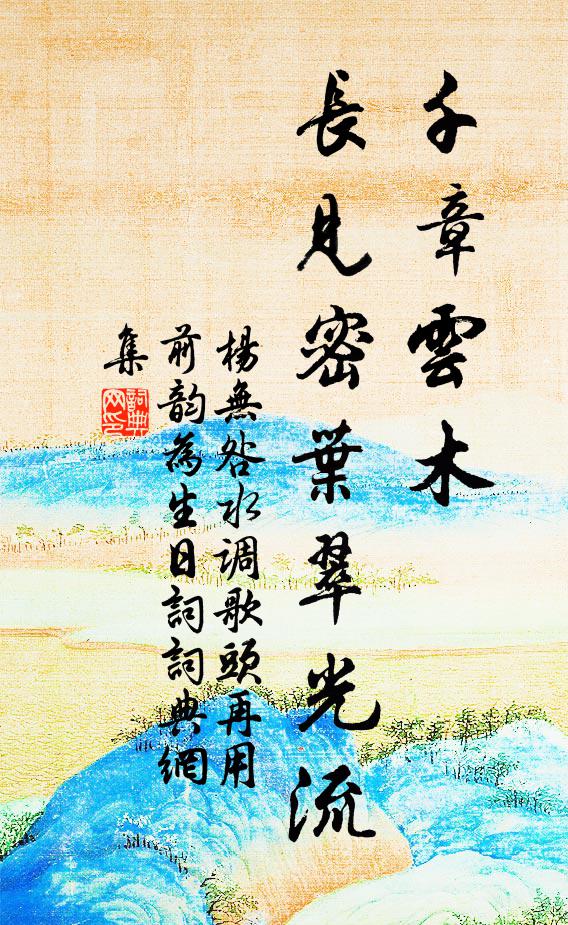 千章雲木
長見密葉翠光流
楊無咎水调歌頭再用
前韵為生日詞詞典網
集
詞典
网印